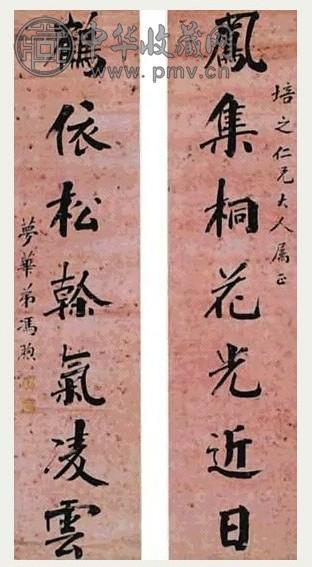 中华收藏网
www.pmv.cn
培之仁兄大人属正
鳳集桐花光近日
鶴依松榦氣凌雲
夢華弟馮煦